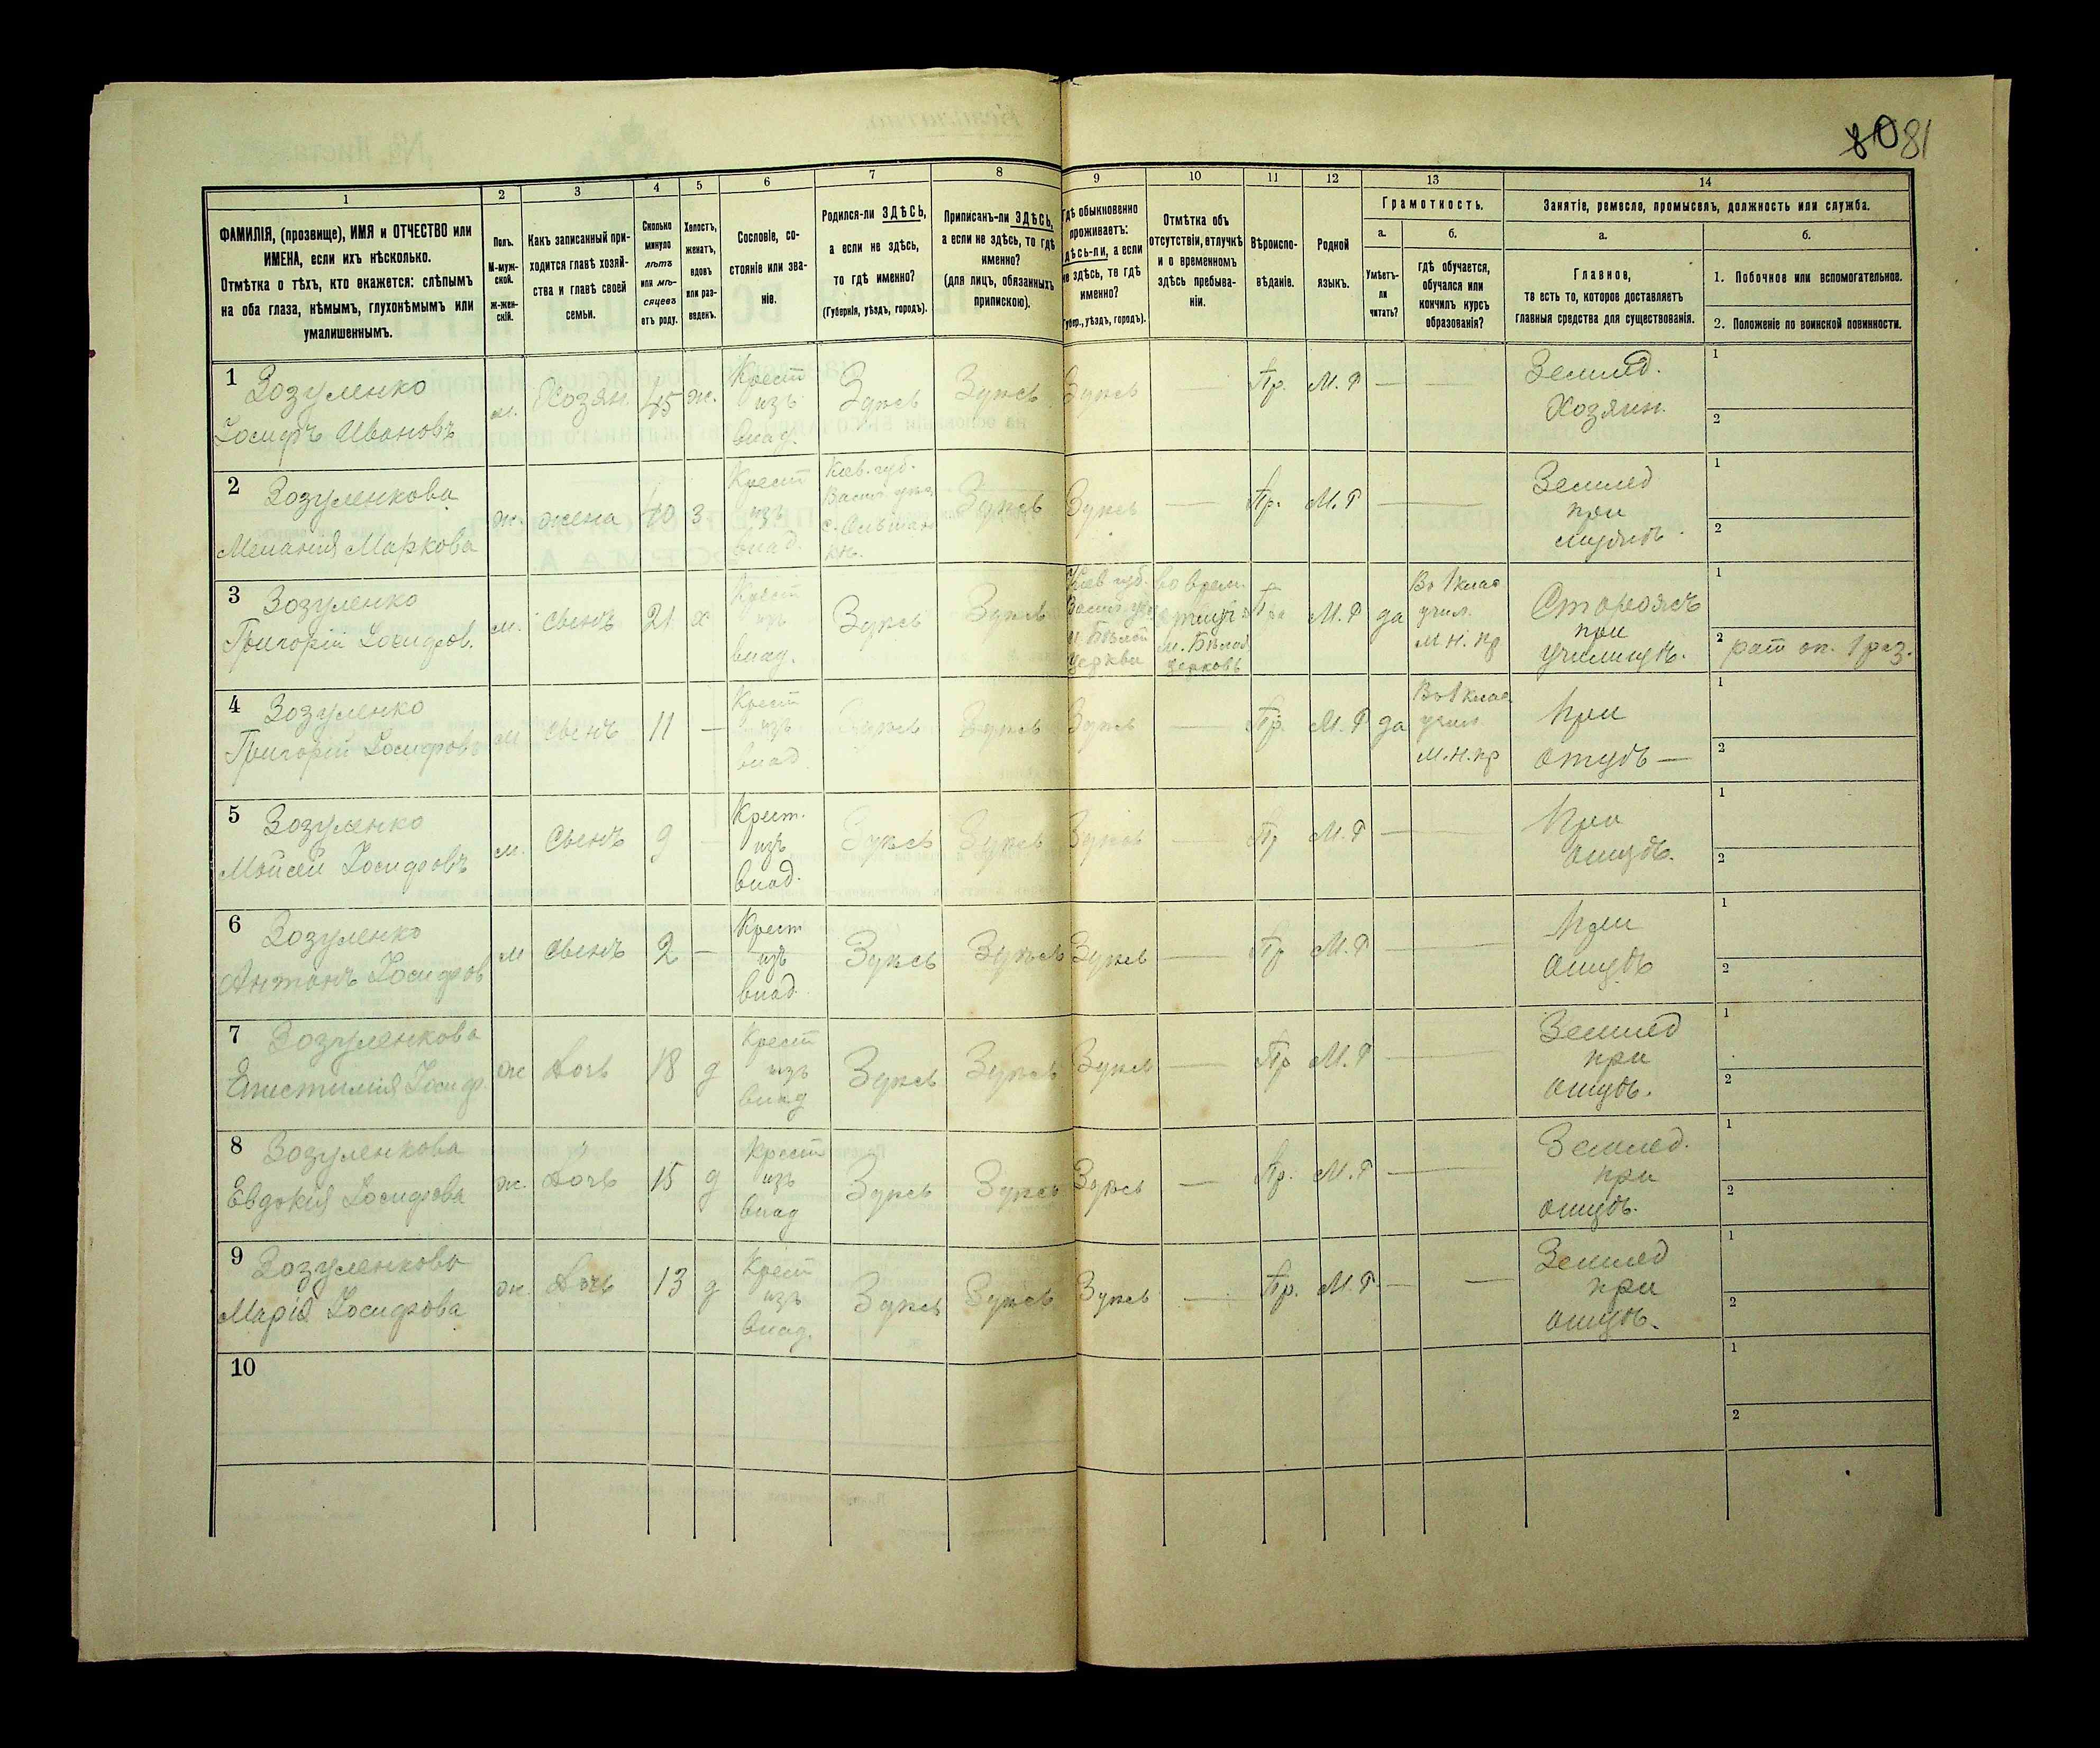 80 81
1
2
3
4
5
6
7
8
9
10
11
12
13
14
ФАМИЛІЯ, (прозвище), ИМЯ и ОТЧЕСТВО или
ИМЕНА, если ихъ нѣсколько.
Отмѣтка о тѣхъ, кто окажется: слѣпымъ
на оба глаза, нѣмымъ, глухонѣмымъ или
умалишеннымъ.
Полъ.
М-муж-
ской.
Ж-жен-
скій.
Какъ записанный при-
ходится главѣ хозяй-
ства и главѣ своей
семьи.
Сколько
минуло
лѣтъ
или мѣ-
сяцевъ
отъ роду.
Холостъ,
женатъ,
вдовъ
или раз-
веденъ.
Сословіе, со-
стояніе или зва-
ніе.
Родился-ли ЗДѢСЬ,
а если не здѣсь,
то гдѣ именно?
(Губернія, уѣздъ, городъ).
Приписанъ-ли ЗДѢСЬ,
а если не здѣсь, то гдѣ
именно?
(для лицъ, обязанныхъ
припискою).
Гдѣ обыкновенно
проживаетъ:
здѣсь-ли, а если
не здѣсь, то гдѣ
именно?
(Губер., уѣздъ, городъ).
Отмѣтка объ
отсутствіи, отлучкѣ
и о временномъ
здѣсь пребыва-
ніи.
Вѣроиспо-
вѣданіе.
Родной
языкъ.
Грамотность.
а.
Умѣетъ-
ли
читать?
б.
гдѣ обучается,
обучался или
кончилъ курсъ
образованія?
Занятіе, ремесло, промыселъ, должность или служба.
а.
Главное,
то есть то, которое доставляетъ
главныя средства для существованія.
б.
1. Побочное или вспомогательное.
2. Положеніе по воинской повинности.
1 Зозуленко
Іосифъ Ивановъ
м.
Хозяи.
45
ж.
Крест
изъ
влад.
Здѣсь
Здѣсь
Здѣсь
—
Пр.
М. Р
—
—
Землед.
Хозяин.
1
2
2 Зозуленкова
Меланія Маркова
ж.
жена
40
з
Крест
изъ
влад.
Кіев. губ.
Васил. уѣз.
Здѣсь
Здѣсь
—
Пр.
М. Р
—
—
Землед
при
мужѣ.
1
2
3 Зозуленко
Григорій Іосифов.
м.
сынъ
21
х
Крест
изъ
влад.
Здѣсь
Здѣсь
Кіев губ.
Васил. уѣз.
м. Бѣлой
Церкви
во врем.
отлуч.
м. Бѣлая
Церковь
Пра
М. Р
да
Въ 1 клас
учил.
М. Н. пр
Сторожъ
при
училищѣ.
1
2 рат оп. 1 раз.
4 Зозуленко
Григорій Іосифовъ
м
сынъ
11
—
Крест
изъ
влад.
Здѣсь
Здѣсь
Здѣсь
—
Пр.
М. Р
да
Въ 1 клас
учил.
М. Н. пр
При
отцѣ —
1
2
5 Зозуленко
Мойсей Іосифовъ
м.
Сынъ
9
—
Крест.
изъ
влад.
Здѣсь
Здѣсь
Здѣсь
—
Пр
М. Р
—
При
отцѣ.
1
2
6 Зозуленко
Антонъ Іосифов
м
сынъ
2
—
Крест
изъ
влад.
Здѣсь
Здѣсь
Здѣсь
—
Пр
М. Р
—
При
отцѣ
1
2
7 Зозуленкова
Епистимія Іосиф.
ж
Дочь
18
д
Крест
изъ
влад
Здѣсь
Здѣсь
Здѣсь
—
Пр
М. Р
—
Землед
при
отцѣ.
1
2
8 Зозуленкова
Евдокія Іосифова
ж.
Дочь
15
д
Крест
изъ
влад
Здѣсь
Здѣсь
Здѣсь
—
Пр.
М. Р
—
Землед.
при
отцѣ.
1
2
9 Зозуленкова
Марія Іосифова
ж.
Дочь
13
д
Крест
изъ
влад.
Здѣсь
Здѣсь
Здѣсь
—
Пр.
М. Р
—
—
Землед
при
отцѣ.
1
2
10
1
2